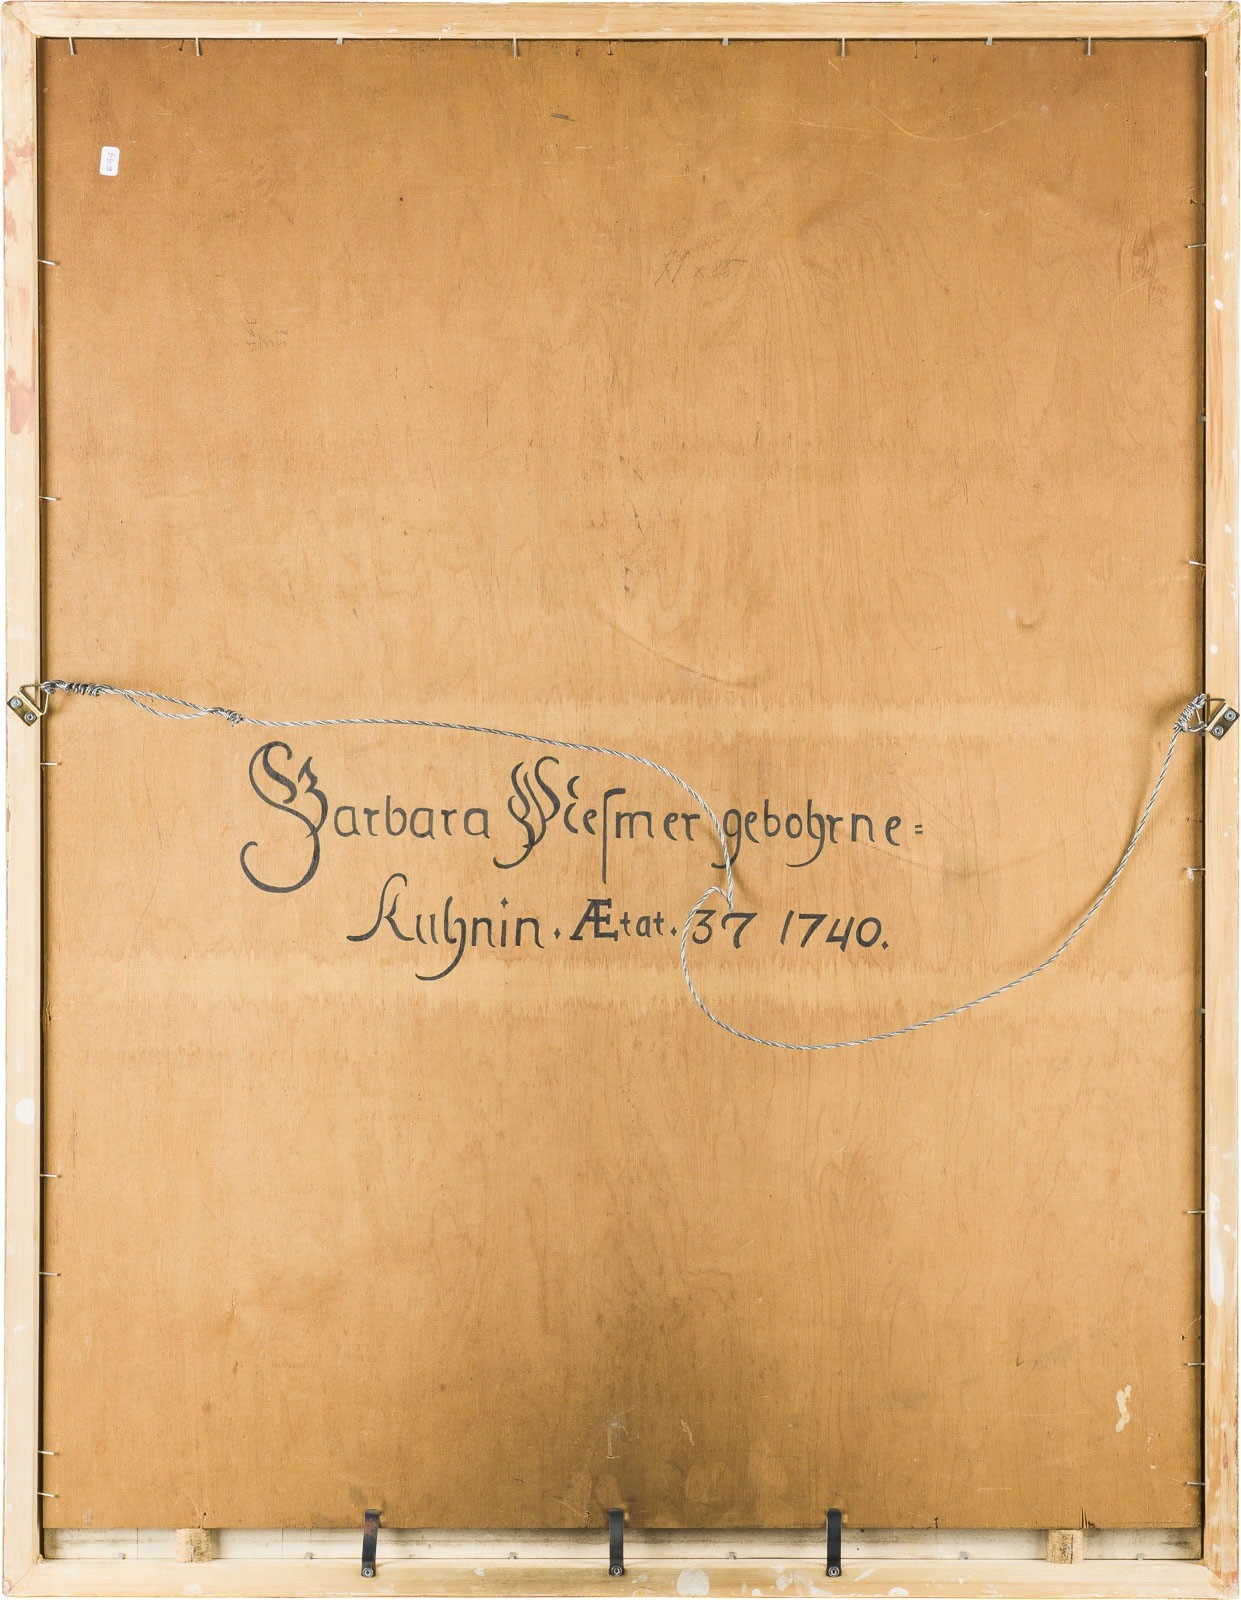 Barbara gebohrne=
Kuhnin. Ætat. 37 1740.